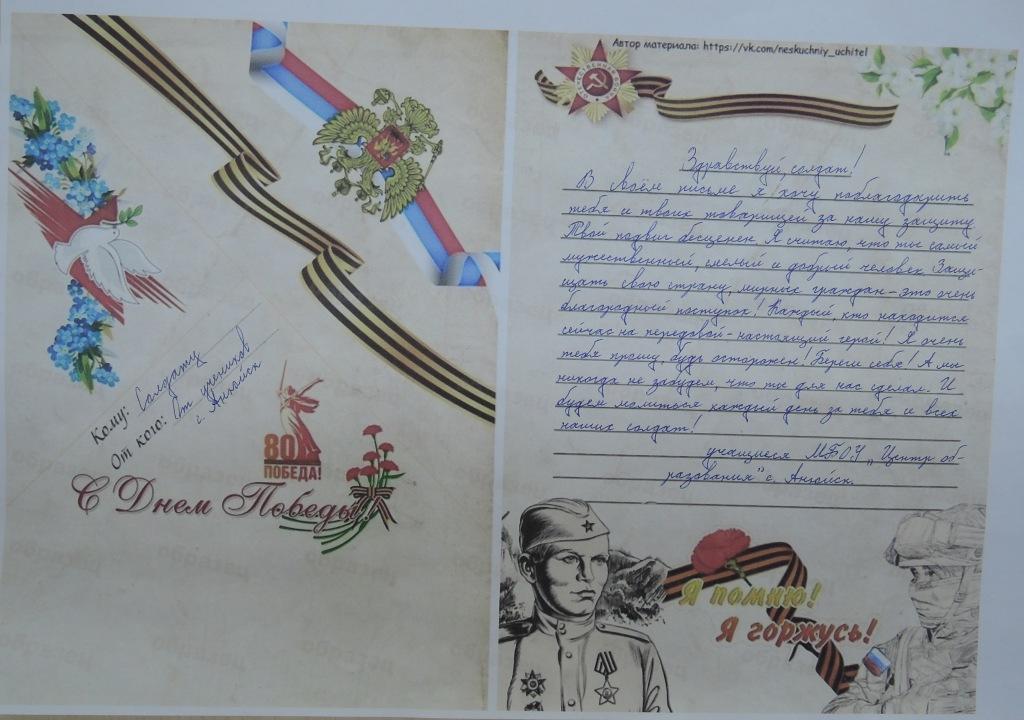 Кому: Солдату
От кого: От учеников
г. Анюйск
80
ПОБЕДА!
С Днем Победы!
Автор материала: https://vk.com/neskuchniy_uchitel
Здравствуй, солдат!
В своём письме я хочу поблагодарить
тебя и твоих товарищей за нашу защиту.
Твой подвиг бесценен. Я считаю, что ты самый
мужественный, смелый и добрый человек. Защи-
щать свою страну, мирных граждан – это очень
благородный поступок! Каждый, кто находится
сейчас на передовой – настоящий герой! Я очень
тебя прошу, будь осторожен! Береги себя! А мы
никогда не забудем, что ты для нас сделал. И
будем молиться каждый день за тебя и всех
наших солдат!
учащиеся МБОУ „Центр об-
разования" с. Анюйск.
Я помню!
Я горжусь!